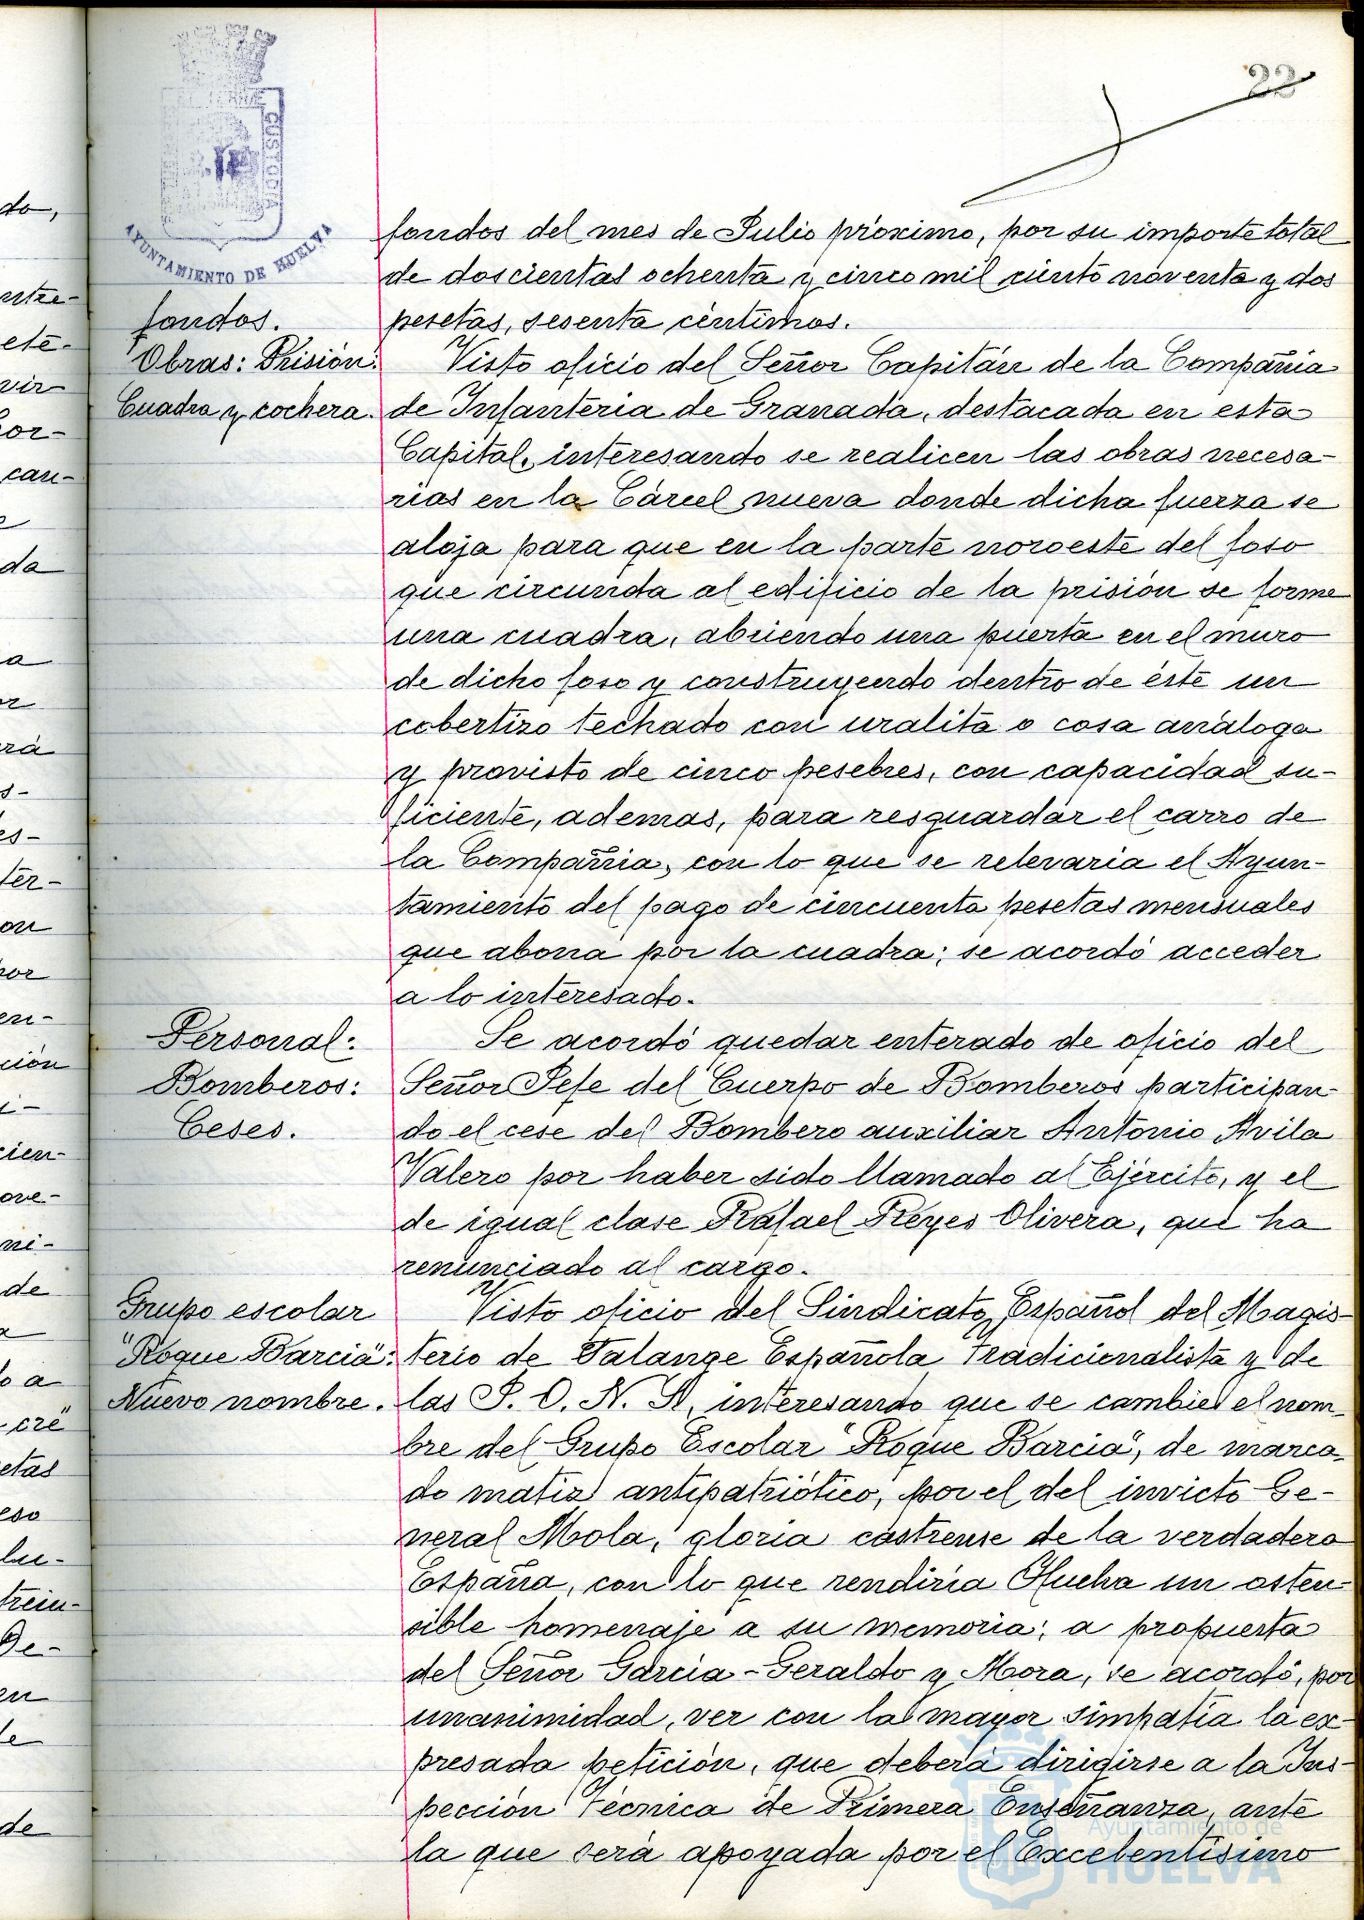 22
CUSTODIA
AYUNTAMIENTO DE HUELVA
fondos del mes de Julio próximo, por su importe total
de doscientas ochenta y cinco mil ciento noventa y dos
fondos.
pesetas, sesenta céntimos.
Obras: Prisión:
Visto oficio del Señor Capitán de la Compañia
Cuadra y cochera.
de Infanteria de Granada, destacada en esta
Capital, interesando se realicen las obras necesa-
rias en la Cárcel nueva donde dicha fuerza se
aloja para que en la parte noroeste del foso
que circunda al edificio de la prisión se forme
una cuadra, abriendo una puerta en el muro
de dicho foso y construyendo dentro de éste un
cobertizo techado con uralita o cosa análoga
y provisto de cinco pesebres, con capacidad su-
ficiente, ademas, para resguardar el carro de
la Compañia, con lo que se relevaria el Ayun-
tamiento del pago de cincuenta pesetas mensuales
que abona por la cuadra; se acordó acceder
a lo interesado.
Personal:
Se acordó quedar enterado de oficio del
Bomberos:
Señor Jefe del Cuerpo de Bomberos participan-
Ceses.
do el cese del Bombero auxiliar Antonio Avila
Valero por haber sido llamado al Ejército, y el
de igual clase Rafael Reyes Olivera, que ha
renunciado al cargo.
Grupo escolar
Visto oficio del Sindicato Español del Magis-
"Roque Barcia":
terio de Falange Española Tradicionalista y de
Nuevo nombre.
las J. O. N. S, interesando que se cambie el nom-
bre del Grupo Escolar "Roque Barcia", de marca-
do matiz antipatriótico, por el del invicto Ge-
neral Mola, gloria castrense de la verdadera
España, con lo que rendiría Huelva un osten-
sible homenaje a su memoria; a propuesta
del Señor García-Geraldo y Mora, se acordó, por
unanimidad, ver con la mayor simpatía la ex-
presada petición, que deberá dirigirse a la Ins-
pección Técnica de Primera Enseñanza, ante
la que será apoyada por el Excelentísimo
Ayuntamiento de
HUELVA